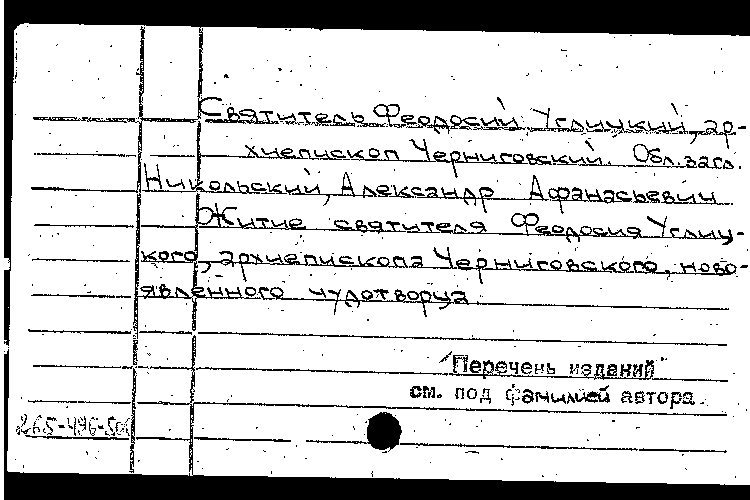 Святитель Феодосий Углицкий, ар-
хиепископ Черниговский. Обл. загл.
Никольский, Александр Афанасьевич
Житие святителя Феодосия Углиц-
кого, архиепископа Черниговского, ново-
явленного чудотворца.
"Перечень изданий"
см. под фамилией автора.